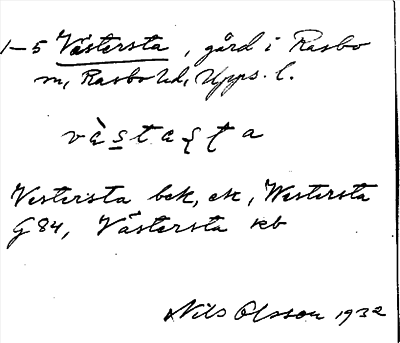 1-5 Västersta, gård i Rasbo
sn, Rasbo hd, Upps. l.
vȁs̲taʂʈa
Vestersta bek, ek, Westersta
G 84, Västersta kb
Nils Olsson 1932